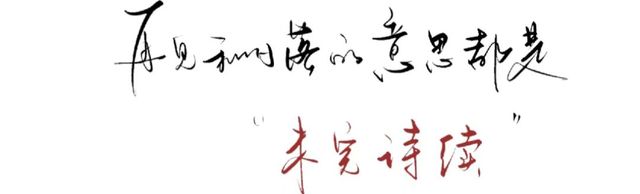 再见和日落的意思都是
“未完待续”